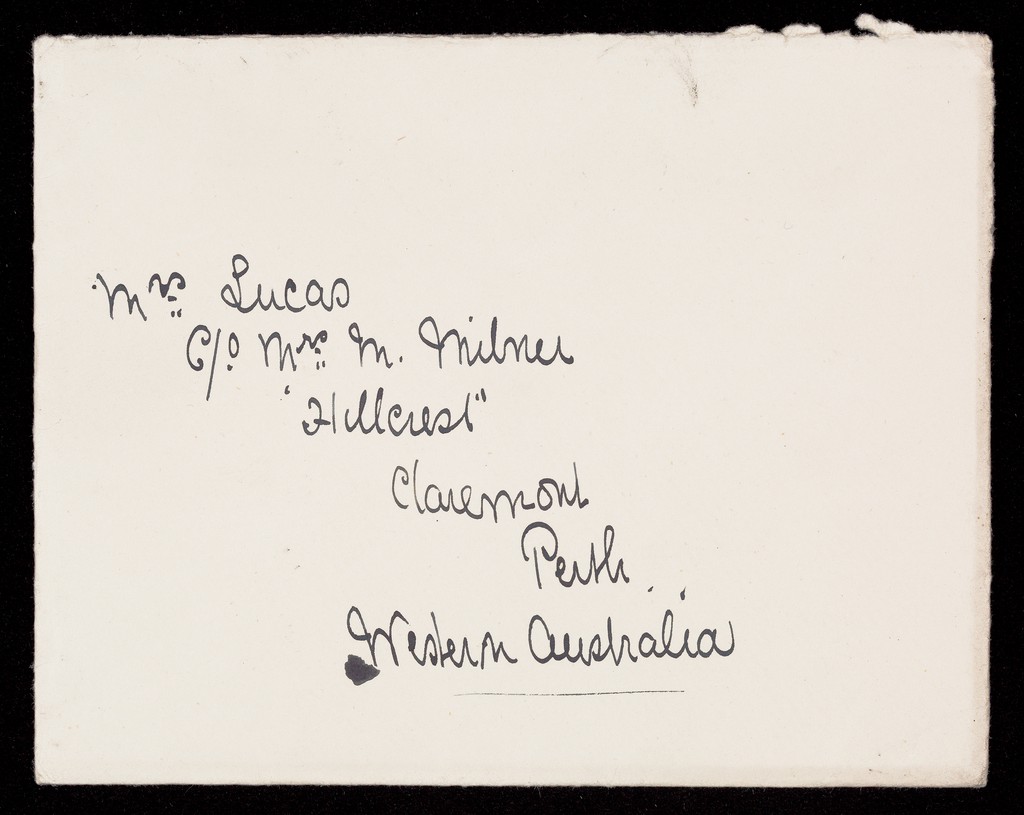 Mrs Lucas
C/o Mrs M. Milner
"Hillcrest"
Claremont
Perth.
Western Australia